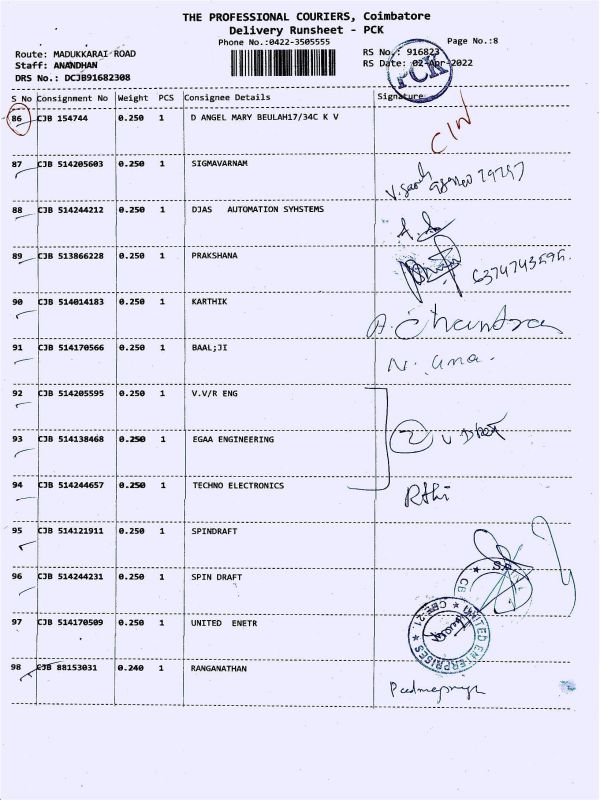 THE PROFESSIONAL COURIERS, Coimbatore
Delivery Runsheet - PCK
Phone No.:0422-3505555
Page No.:8
Route: MADUKKARAI ROAD
RS No.: 916823
Staff: ANANDHAN
RS Date: 02-Apr-2022
PCK
DRS No.: DCJB91682308
S No Consignment No Weight PCS Consignee Details Signature
86 CJB 154744 0.250 1 D ANGEL MARY BEULAH17/34C K V
87 CJB 514205603 0.250 1 SIGMAVARNAM
88 CJB 514244212 0.250 1 DJAS AUTOMATION SYHSTEMS
89 CJB 513866228 0.250 1 PRAKSHANA
6374743595
90 CJB 514014183 0.250 1 KARTHIK
A. Chandra
91 CJB 514170566 0.250 1 BAAL;JI
N. Uma.
92 CJB 514205595 0.250 1 V.V/R ENG
93 CJB 514138468 0.250 1 EGAA ENGINEERING
2
94 CJB 514244657 0.250 1 TECHNO ELECTRONICS
95 CJB 514121911 0.250 1 SPINDRAFT
96 CJB 514244231 0.250 1 SPIN DRAFT
97 CJB 514170509 0.250 1 UNITED ENETR
UNITED ENTERPRISES ★ CBE-21. ★
98 CJB 88153031 0.240 1 RANGANATHAN